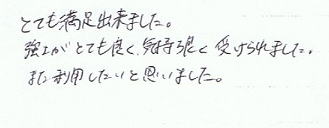 とても満足出来ました。
強さがとても良く、気持ち良く受けられました。
また利用したいと思いました。